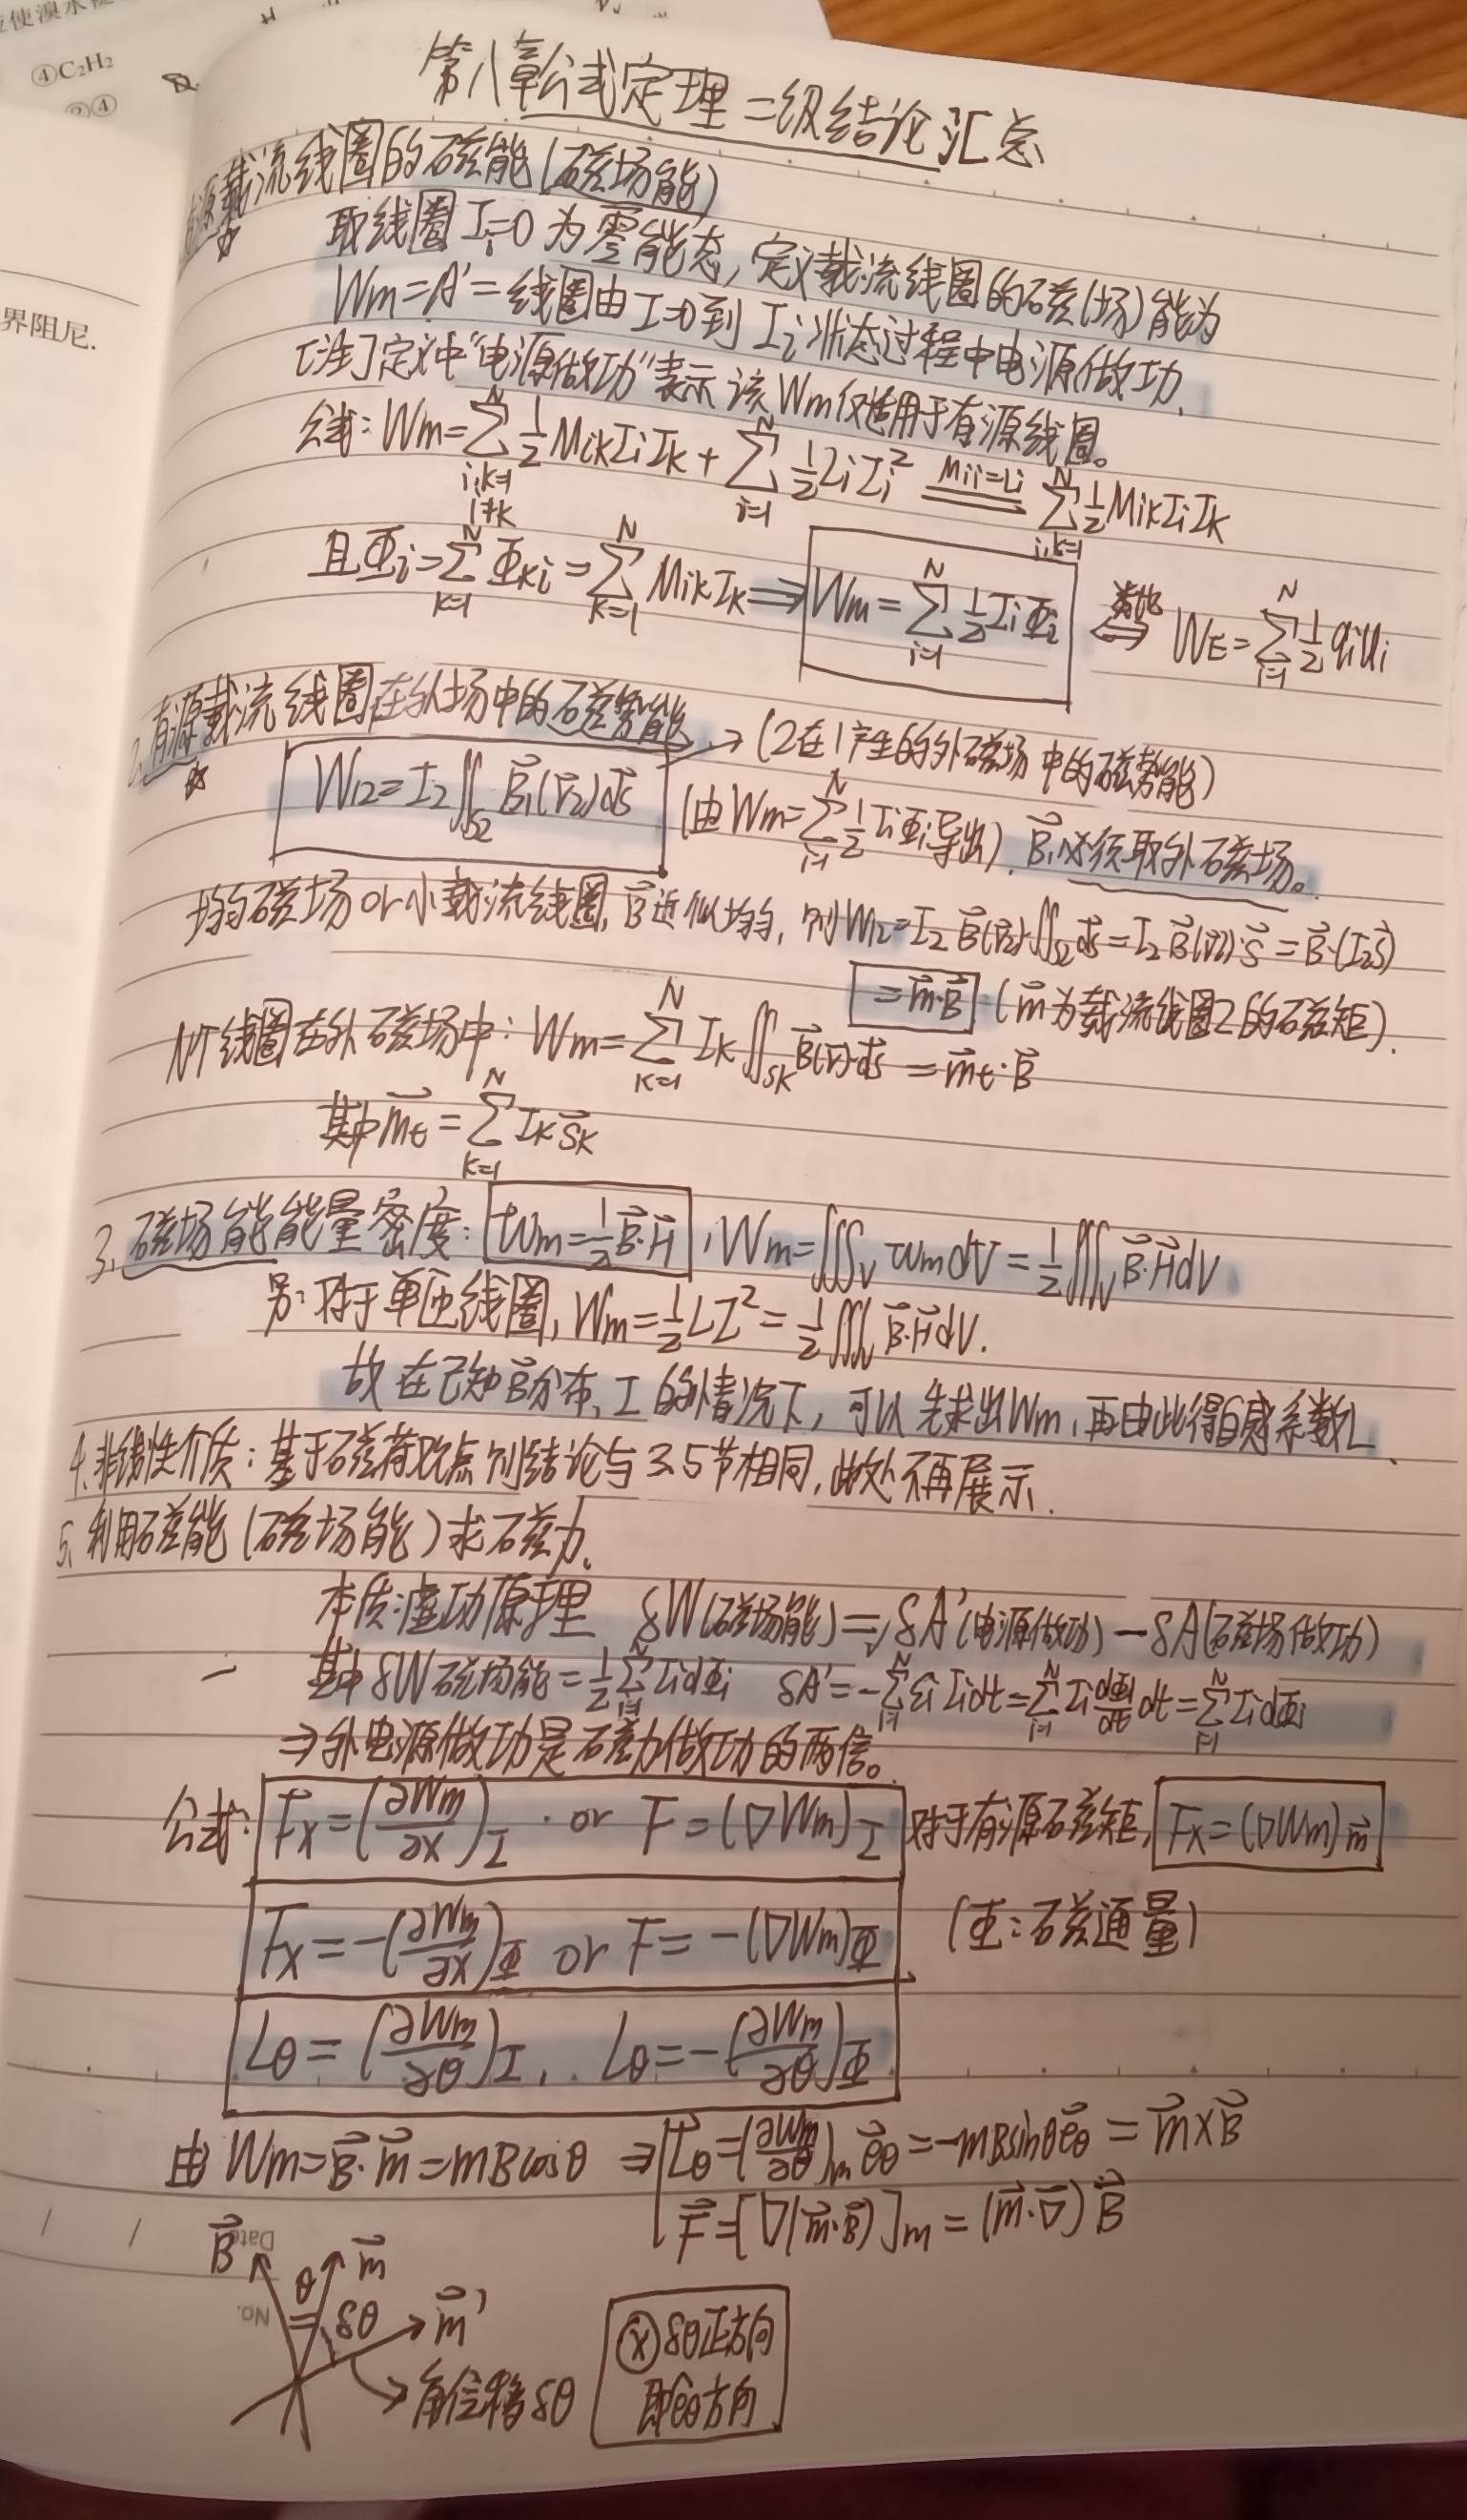 应使溴水褪
④C₂H₂
②④
界阻尼.
第八章公式定理二级结论汇总
有源载流线圈的磁能(磁场能)
取线圈 Iᵢ=0 为零能态, 定义载流线圈的磁(场)能为
Wm=A'=线圈由 I=0 到 Iᵢ 状态过程中电源做功.
[注]定义中"电源做功"表示该 Wm 仅适用于有源线圈。
公式: Wm=∑_{i,k=1, i≠k}^{N} ½MikIiIk + ∑_{i=1}^{N} ½LiIi² ==(Mii=Li)== ∑_{i,k=1}^{N} ½MikIiIk
且Φi=∑_{k=1}^{N} Φki=∑_{k=1}^{N} MikIk ⟹ Wm=∑_{i=1}^{N} ½IiΦi ⟺(类比) WE=∑_{i=1}^{N} ½qiUi
2. 有源载流线圈在外场中的磁势能 → (2在1产生的外磁场中的磁势能)
W12=I2∬_{S2} B⃗1(r⃗2)ds⃗ (由 Wm=∑_{i=1}^{N} ½IiΦi导出). B⃗1必须取外磁场。
均匀磁场 or 小载流线圈, B⃗近似均匀, 则W12=I2 B⃗(r⃗2)·∬_{S2}ds⃗=I2 B⃗(r⃗2)·S⃗=B⃗·(I2S⃗)
=m⃗·B⃗ (m⃗为载流线圈2的磁矩).
N个线圈在外磁场中: Wm=∑_{k=1}^{N} Ik∬_{Sk} B⃗(r)·ds⃗=m⃗t·B⃗
其中m⃗t=∑_{k=1}^{N} IkS⃗k
3. 磁场能能量密度: wm=½B⃗·H⃗, Wm=∭_V wmdV=½∭_V B⃗·H⃗dV
另: 对于单匝线圈, Wm=½LI²=½∭_V B⃗·H⃗dV.
故在已知B⃗分布, I 的情况下, 可以先求出Wm, 再由此得自感系数L.
4. 非线性介质: 基于磁荷观点则结论与3.5节相同, 此处不再展示.
5. 利用磁能(磁场能)求磁力.
本质: 虚功原理 δW(磁场能)=δA'(电源做功)-δA(磁场做功)
其中 δW磁场能=½∑_{i=1}^{N} IidΦi δA'=-∑_{i=1}^{N} εiIidt=∑_{i=1}^{N} Ii dΦi/dt dt=∑_{i=1}^{N} IidΦi
⇒外电源做功是磁力做功的两倍。
公式: Fx=(∂Wm/∂x)_I . or F=(∇Wm)_I 对于有源磁矩, Fx=(∇Wm)_m⃗
Fx=-(∂Wm/∂x)_Φ or F=-(∇Wm)_Φ (Φ: 磁通量)
Lθ=(∂Wm/∂θ)_I, Lθ=-(∂Wm/∂θ)_Φ
由 Wm=B⃗·m⃗=mBcosθ ⇒ L⃗θ=(∂Wm/∂θ)_m e⃗θ=-mBsinθe⃗θ=m⃗×B⃗
F⃗=[∇(m⃗·B⃗)]_m=(m⃗·∇)B⃗
Date
No.
B⃗ θ m⃗
δθ m⃗'
角位移δθ
ⓧ δθ正方向
即e⃗θ方向